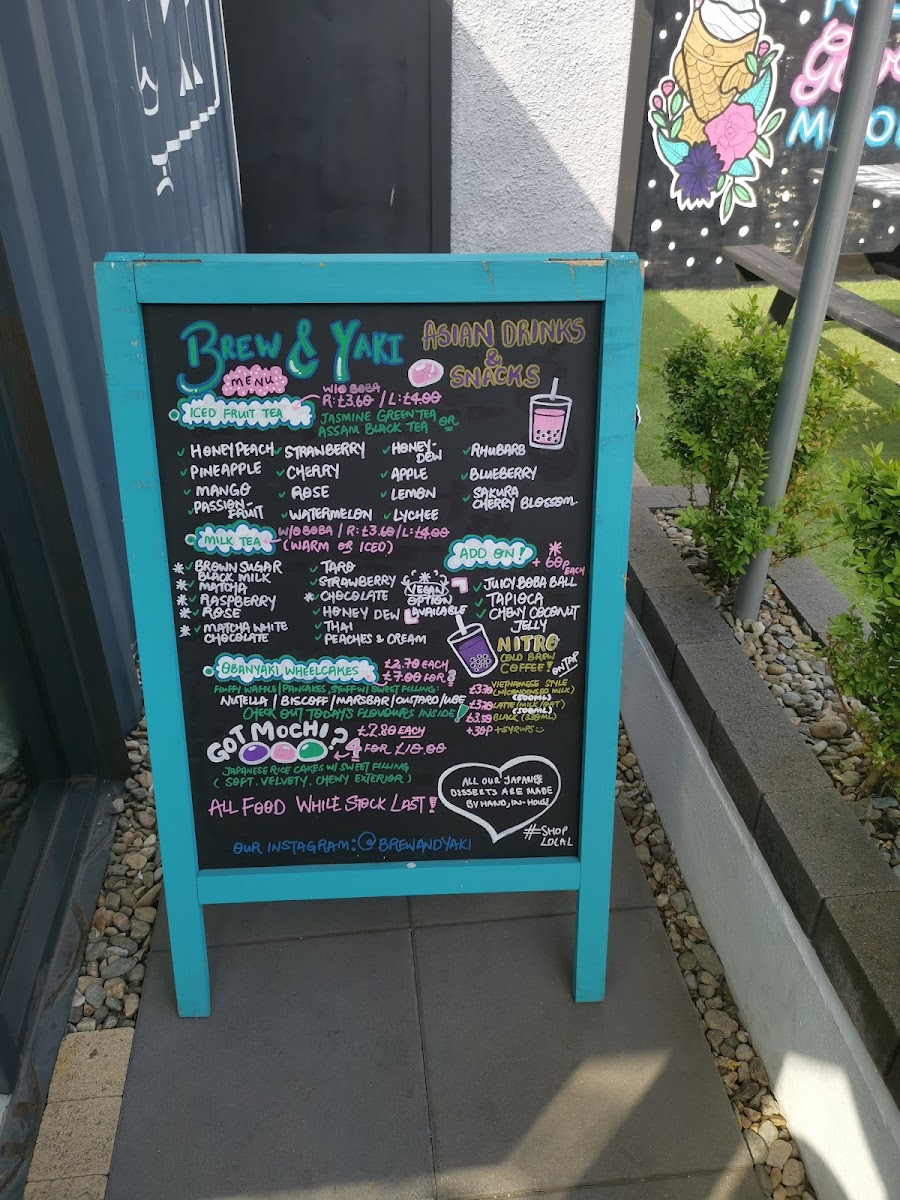 BREW & YAKI
ASIAN DRINKS
&
SNACKS
MENU
ICED FRUIT TEA
W/O BOBA
R:£3.60 / L:£4.00
JASMINE GREEN TEA OR
ASSAM BLACK TEA
HONEYPEACH
PINEAPPLE
MANGO
PASSION-
FRUIT
STRAWBERRY
CHERRY
ROSE
WATERMELON
HONEY-
DEW
APPLE
LEMON
LYCHEE
RHUBARB
BLUEBERRY
SAKURA
CHERRY BLOSSOM
MILK TEA
W/O BOBA / R:£3.60/L:£4.00
(WARM OR ICED)
* BROWN SUGAR
BLACK MILK
* MATCHA
* RASPBERRY
* ROSE
* MATCHA WHITE
CHOCOLATE
TARO
STRAWBERRY
* CHOCOLATE
HONEY DEW
THAI
PEACHES & CREAM
*
VEGAN
OPTION
AVAILABLE
ADD ON!
* + 60p EACH
JUICY BOBA BALL
TAPIOCA
CHEWY COCONUT
JELLY
NITRO
COLD BREW
COFFEE!
ON TAP
£3.70 VIETNAMESE STYLE
(W/CONDENSED MILK)
(500ML)
£3.70 LATTE (MILK/OAT)
(500ML)
£3.50 BLACK (330ML)
+30P +SYRUPS
OBANYAKI WHEELCAKES
£2.70 EACH
£7.00 FOR 3
FLUFFY WAFFLE/PANCAKES, STUFF W/ SWEET FILLING:
NUTELLA / BISCOFF / MARSBAR / CUSTARD / UBE
CHECK OUT TODAY'S FLAVOURS INSIDE!
GOT MOCHI?
£2.80 EACH
4 FOR £10.00
JAPANESE RICE CAKES W/ SWEET FILLING
(SOFT, VELVETY, CHEWY EXTERIOR)
ALL FOOD WHILE STOCK LAST!
ALL OUR JAPANESE
DESSERTS ARE MADE
BY HAND, IN-HOUSE
#SHOP
LOCAL
OUR INSTAGRAM: @BREWANDYAKI